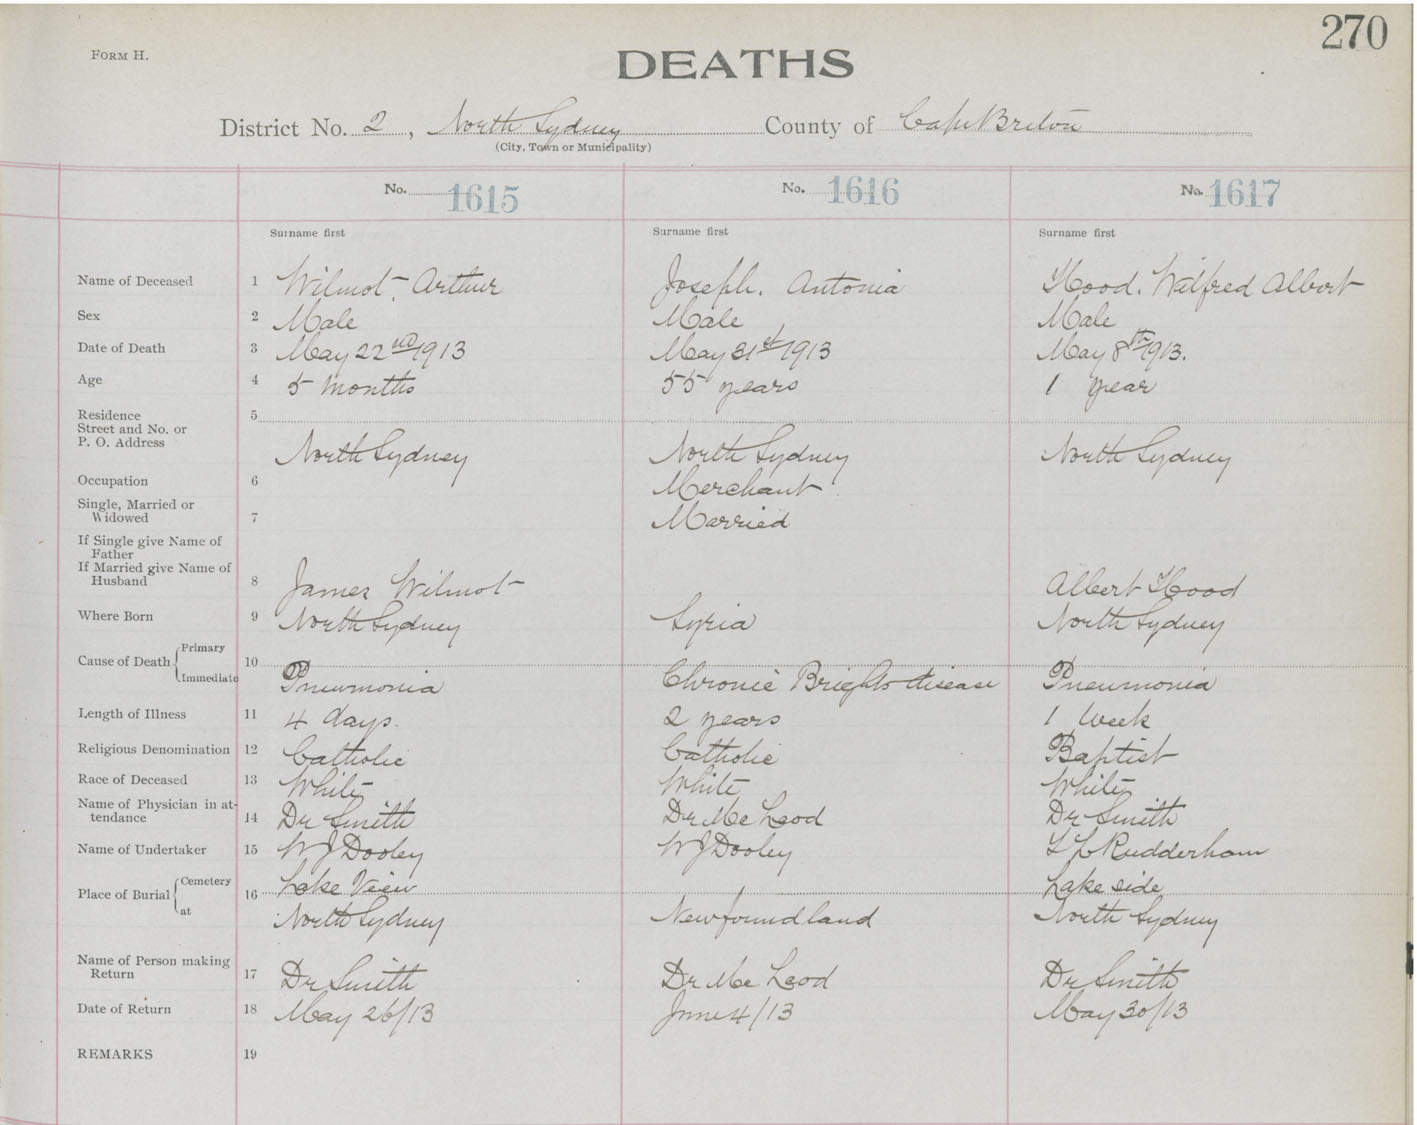 270
FORM H.
DEATHS
District No. 2, North Sydney County of Cape Breton
(City, Town or Municipality)
No. 1615 No. 1616 No. 1617
Surname first Surname first Surname first
Name of Deceased 1 Wilmot, Arthur Joseph. Antonia Hood. Wilfred Albert
Sex 2 Male Male Male
Date of Death 3 May 22nd 1913 May 31st 1913 May 8th 1913.
Age 4 5 months 55 years 1 year
Residence 5
Street and No. or
P. O. Address North Sydney North Sydney North Sydney
Occupation 6 Merchant
Single, Married or
Widowed 7 Married
If Single give Name of
Father
If Married give Name of
Husband 8 James Wilmot Albert Hood
Where Born 9 North Sydney Syria North Sydney
Cause of Death Primary 10
Immediate Pneumonia Chronic Brights disease Pneumonia
Length of Illness 11 4 days. 2 years 1 Week
Religious Denomination 12 Catholic Catholic Baptist
Race of Deceased 13 White White White
Name of Physician in at-
tendance 14 Dr Smith Dr Mc Leod Dr Smith
Name of Undertaker 15 W J Dooley W J Dooley Rudderham
Place of Burial Cemetery 16 Lake View Lake side
at North Sydney Newfoundland North Sydney
Name of Person making
Return 17 Dr Smith Dr Mc Leod Dr Smith
Date of Return 18 May 26/13 June 4/13 May 30/13
REMARKS 19